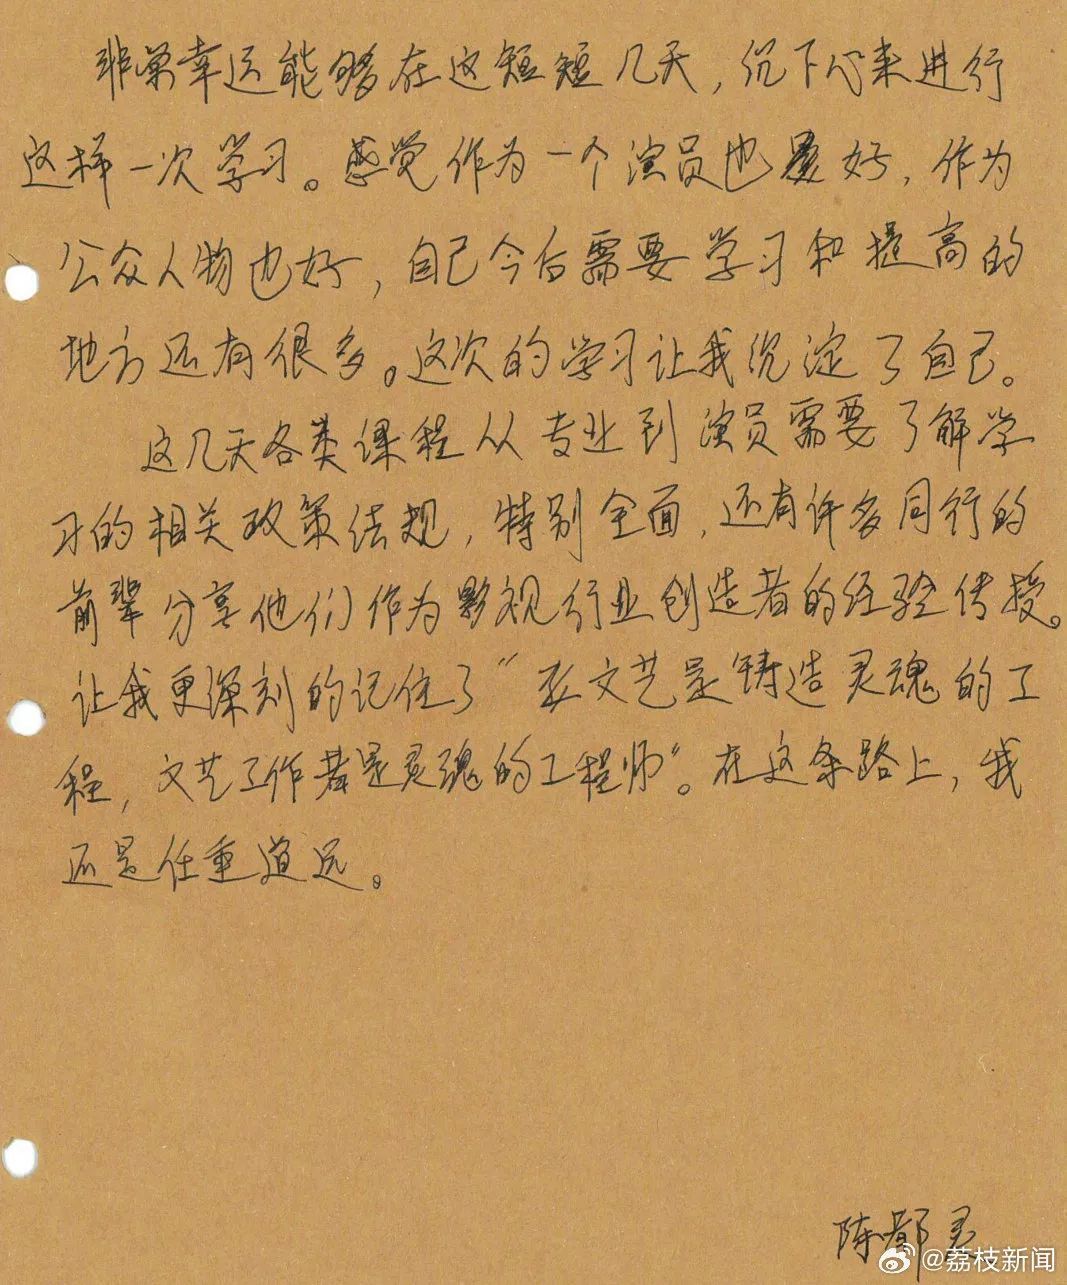 非常幸运能够在这短短几天，沉下心来进行
这样一次学习。感觉作为一个演员也好，作为
公众人物也好，自己今后需要学习和提高的
地方还有很多。这次的学习让我沉淀了自己。
这几天各类课程从专业到演员需要了解学
习的相关政策法规，特别全面，还有许多同行的
前辈分享他们作为影视行业创造者的经验传授。
让我更深刻的记住了“文艺是铸造灵魂的工
程，文艺工作者是灵魂的工程师”。在这条路上，我
还是任重道远。
陈都灵
@荔枝新闻